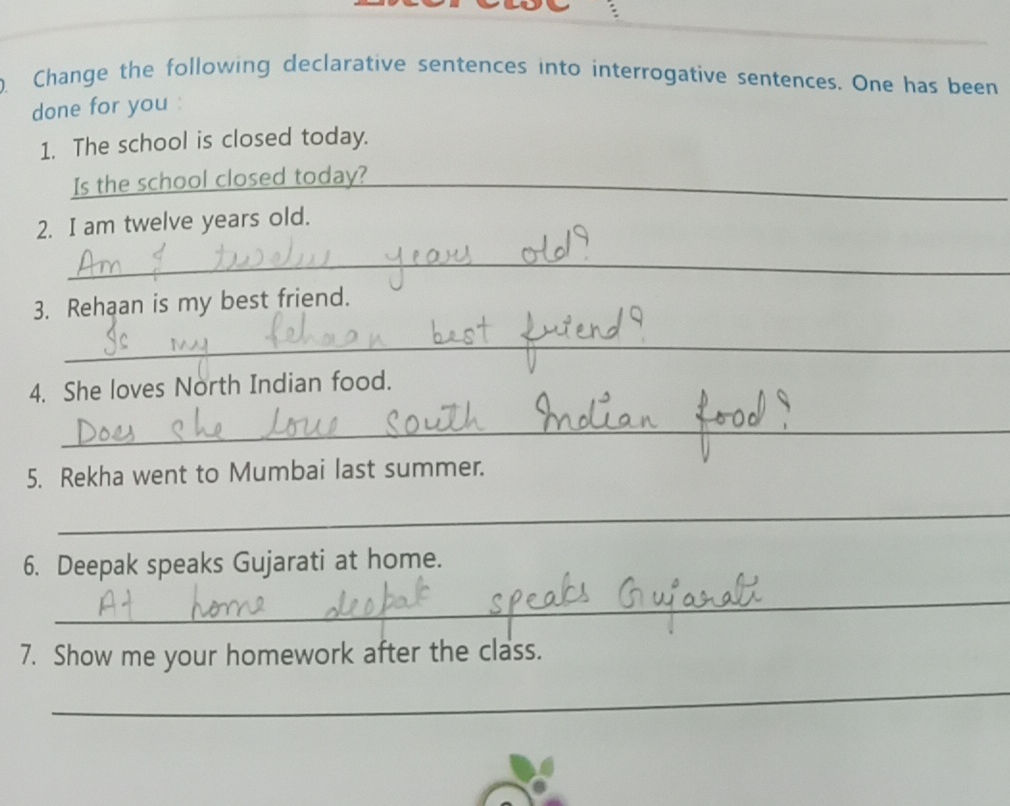 Exercise
Change the following declarative sentences into interrogative sentences. One has been
done for you :
1. The school is closed today.
Is the school closed today?
2. I am twelve years old.
Am I twelve years old?
3. Rehaan is my best friend.
Is my Rehaan best friend?
4. She loves North Indian food.
Does she love South Indian food?
5. Rekha went to Mumbai last summer.
6. Deepak speaks Gujarati at home.
At home deepak speaks Gujarati
7. Show me your homework after the class.